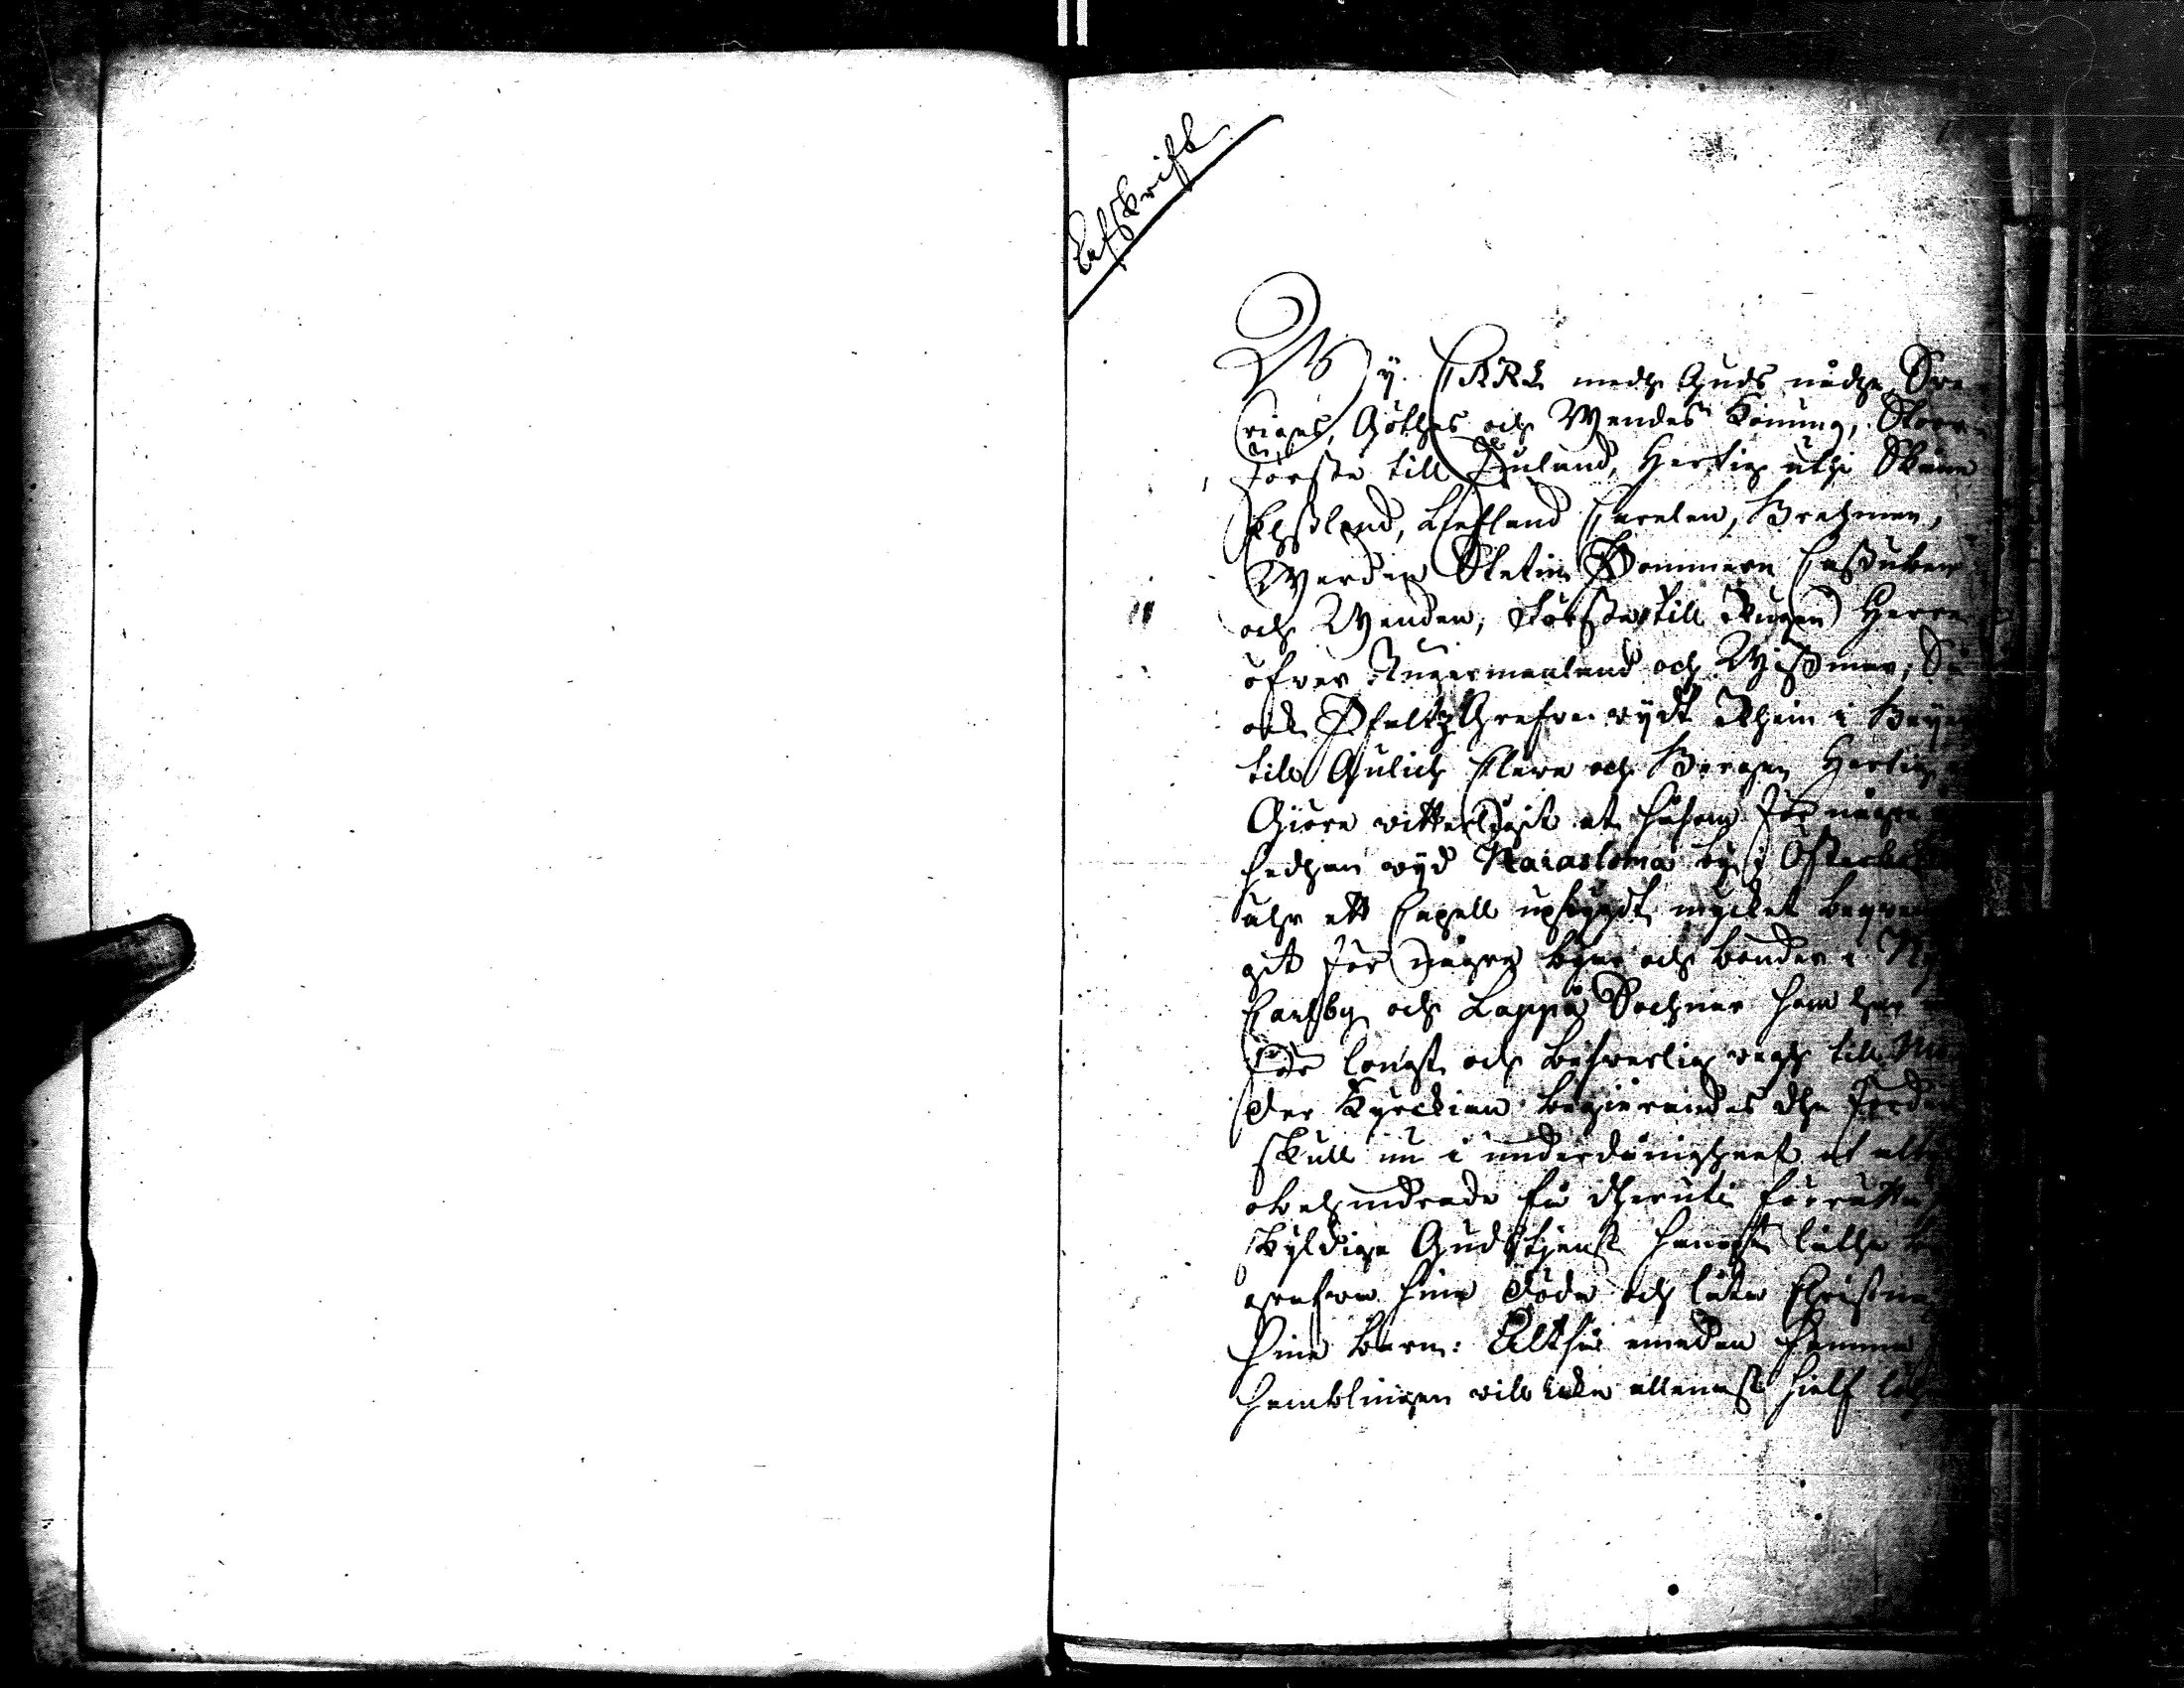 Afskrift
Wy CARL medh Guds nådhe Swe-
riges, Göthes och Wendes Konung, Stoor-
Förste till Finland, Hertig uthi Skåne
Ehstland, Liefland Carelen, Brehmen,
Werden Stetin Pommern Cassuben
och Wenden, Förste till Rugen Herre
öfwer Ingermanland och Wissmar, Så
ock Pfaltz Grefwe widt Rhein i Beyern
till Gülich Cleve och Bergen Hertig
Giöre witterligit at såsom för någre
sedhan wijd Karasloma by i Österbotn
ähr ett Capell upbygdt mycket beqwem
git för någre byar och bönder i Ny
Carlby och Lappo Sochnar som har
för långt och beswerlig wägh till Mo
der Kyrckian begiärandes dhe förden
skull nu i underdånigheet at alt
obehindrade få dheruti förrätta
skyldige Gudztjenst samt låtha be
grafwa sine döde och låta Christna
sine barn: Altså emedan samma
Hamblingen will icke allenast sielf